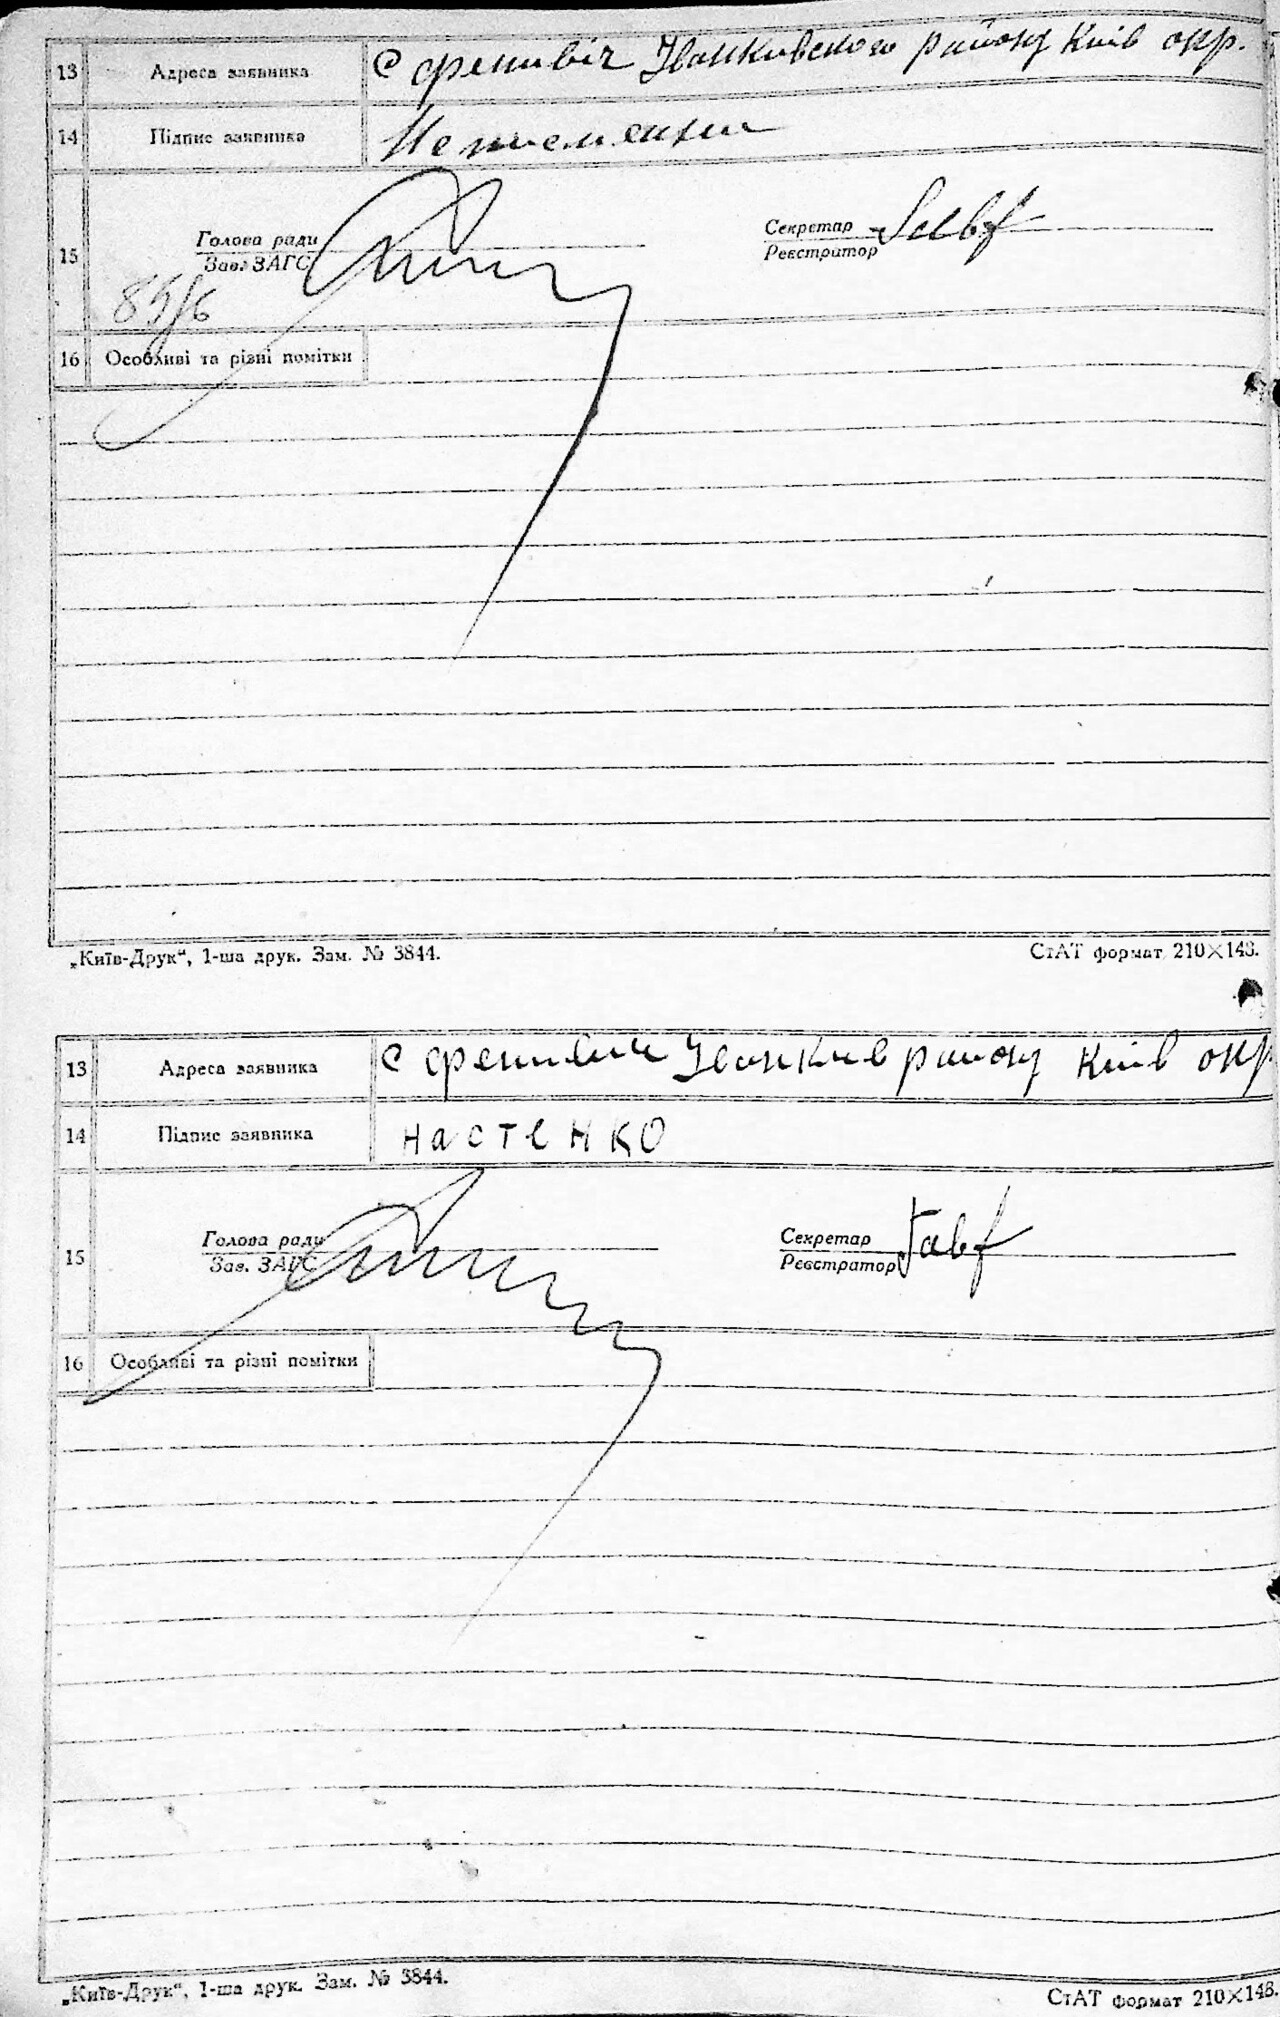 13 Адреса заявника С фенивіч Іванківского району Київ окр.
14 Підпис заявника Неписменни
15 Голова ради Секретар
Зав. ЗАГС Реєстратор
85/6
16 Особливі та різні помітки
„Київ-Друк“, 1-ша друк. Зам. № 3844. СтАТ формат 210×148.
13 Адреса заявника С фенивич Іванкив району Київ окр
14 Підпис заявника настенко
15 Голова ради Секретар
Зав. ЗАГС Реєстратор
16 Особливі та різні помітки
„Київ-Друк“, 1-ша друк. Зам. № 3844. СтАТ формат 210×148.